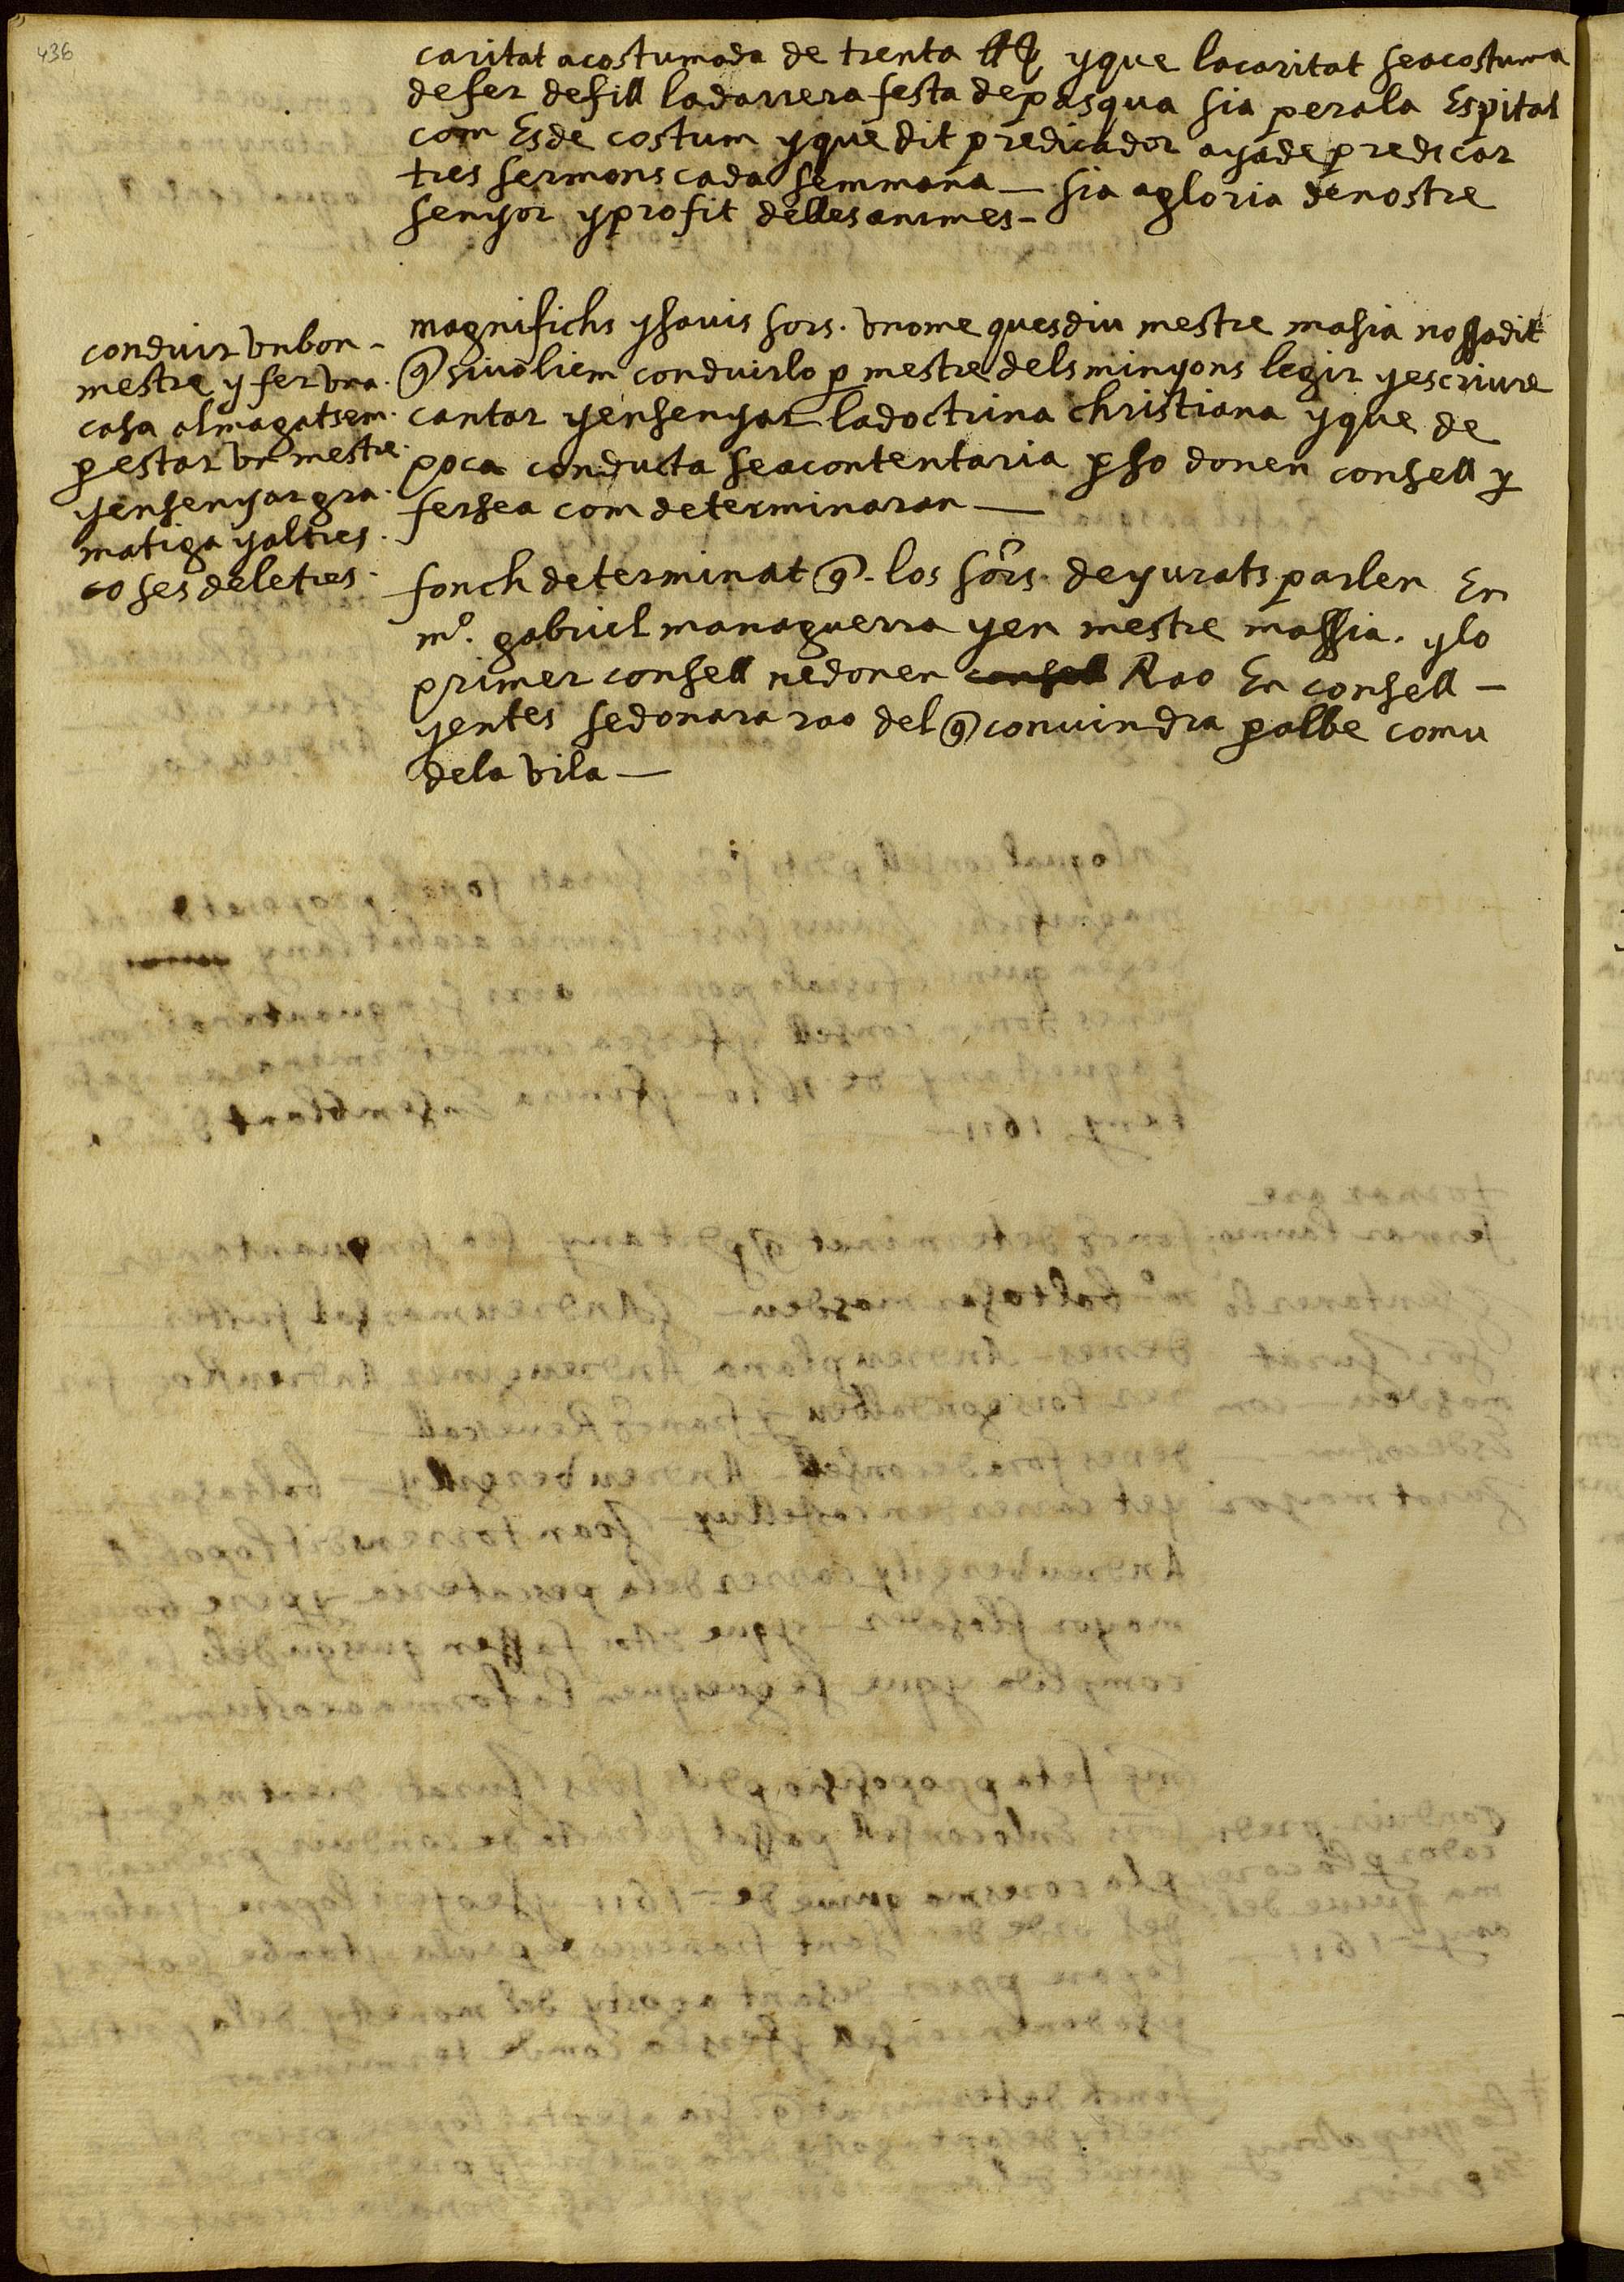 436
caritat acostumada de trenta ll yque lacaritat seacostuma
defer defill ladarrera festa depasqua sia perala Espital
com Esde costum yque dit predicador ayade predicar
tres sermons cada semmana — sia agloria denostre
senyor yprofit dellesanimes -
conduir vnbon -
mestre y fer vna.
casa almagatsem.
p estar vn mestre.
yensenyar gra.
matiga yaltres.
coses deletres.
magnifichs ysauis sors. vnome quesdiu mestre masia nossadit
q sivoliem conduirlo p mestre dels minyons legir yescriure
cantar yensenyar ladoctrina christiana yque de
poca conducta seacontentaria pso donen consell y
fersea com determinaran —
fonch determinat q. los sors. deyurats parlen En
mº. gabriel managuerra yen mestre massia. ylo
primer consell nedonen consell Rao En consell —
yentes sedonara rao del q convindra palbe comu
dela vila —